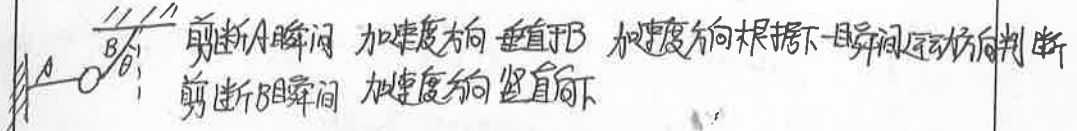 B θ A
剪断A瞬间 加速度方向 垂直于B 加速度方向根据下一瞬间运动方向判断
剪断B瞬间 加速度方向 竖直向下